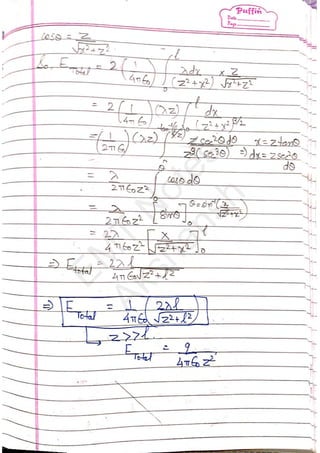 Puffin
Date
Page
cosθ = z / √(x²+z²)
So, E_Total = 2 (1/4πϵ₀) ∫₀^l λdx/(z²+x²) × z/√(z²+x²)
= 2 (1/4πϵ₀) (λz) ∫₀^l dx/(z²+x²)^(3/2)
= (1/2πϵ₀) (λz) ∫ z sec²θ dθ / z³(sec³θ) x = z tanθ
⇒ dx = z sec²θ dθ
= λ/2πϵ₀z ∫ cosθ dθ
= λ/2πϵ₀z [sinθ] θ = sin⁻¹(x/√(z²+x²))
= 2λ/4πϵ₀z [x/√(z²+x²)]₀^l
⇒ E_total = 2λl / 4πϵ₀z√(z²+l²)
⇒ E_Total = 1/4πϵ₀ (2λl/√(z²+l²))
z >> l
E_Total = q/4πϵ₀z²